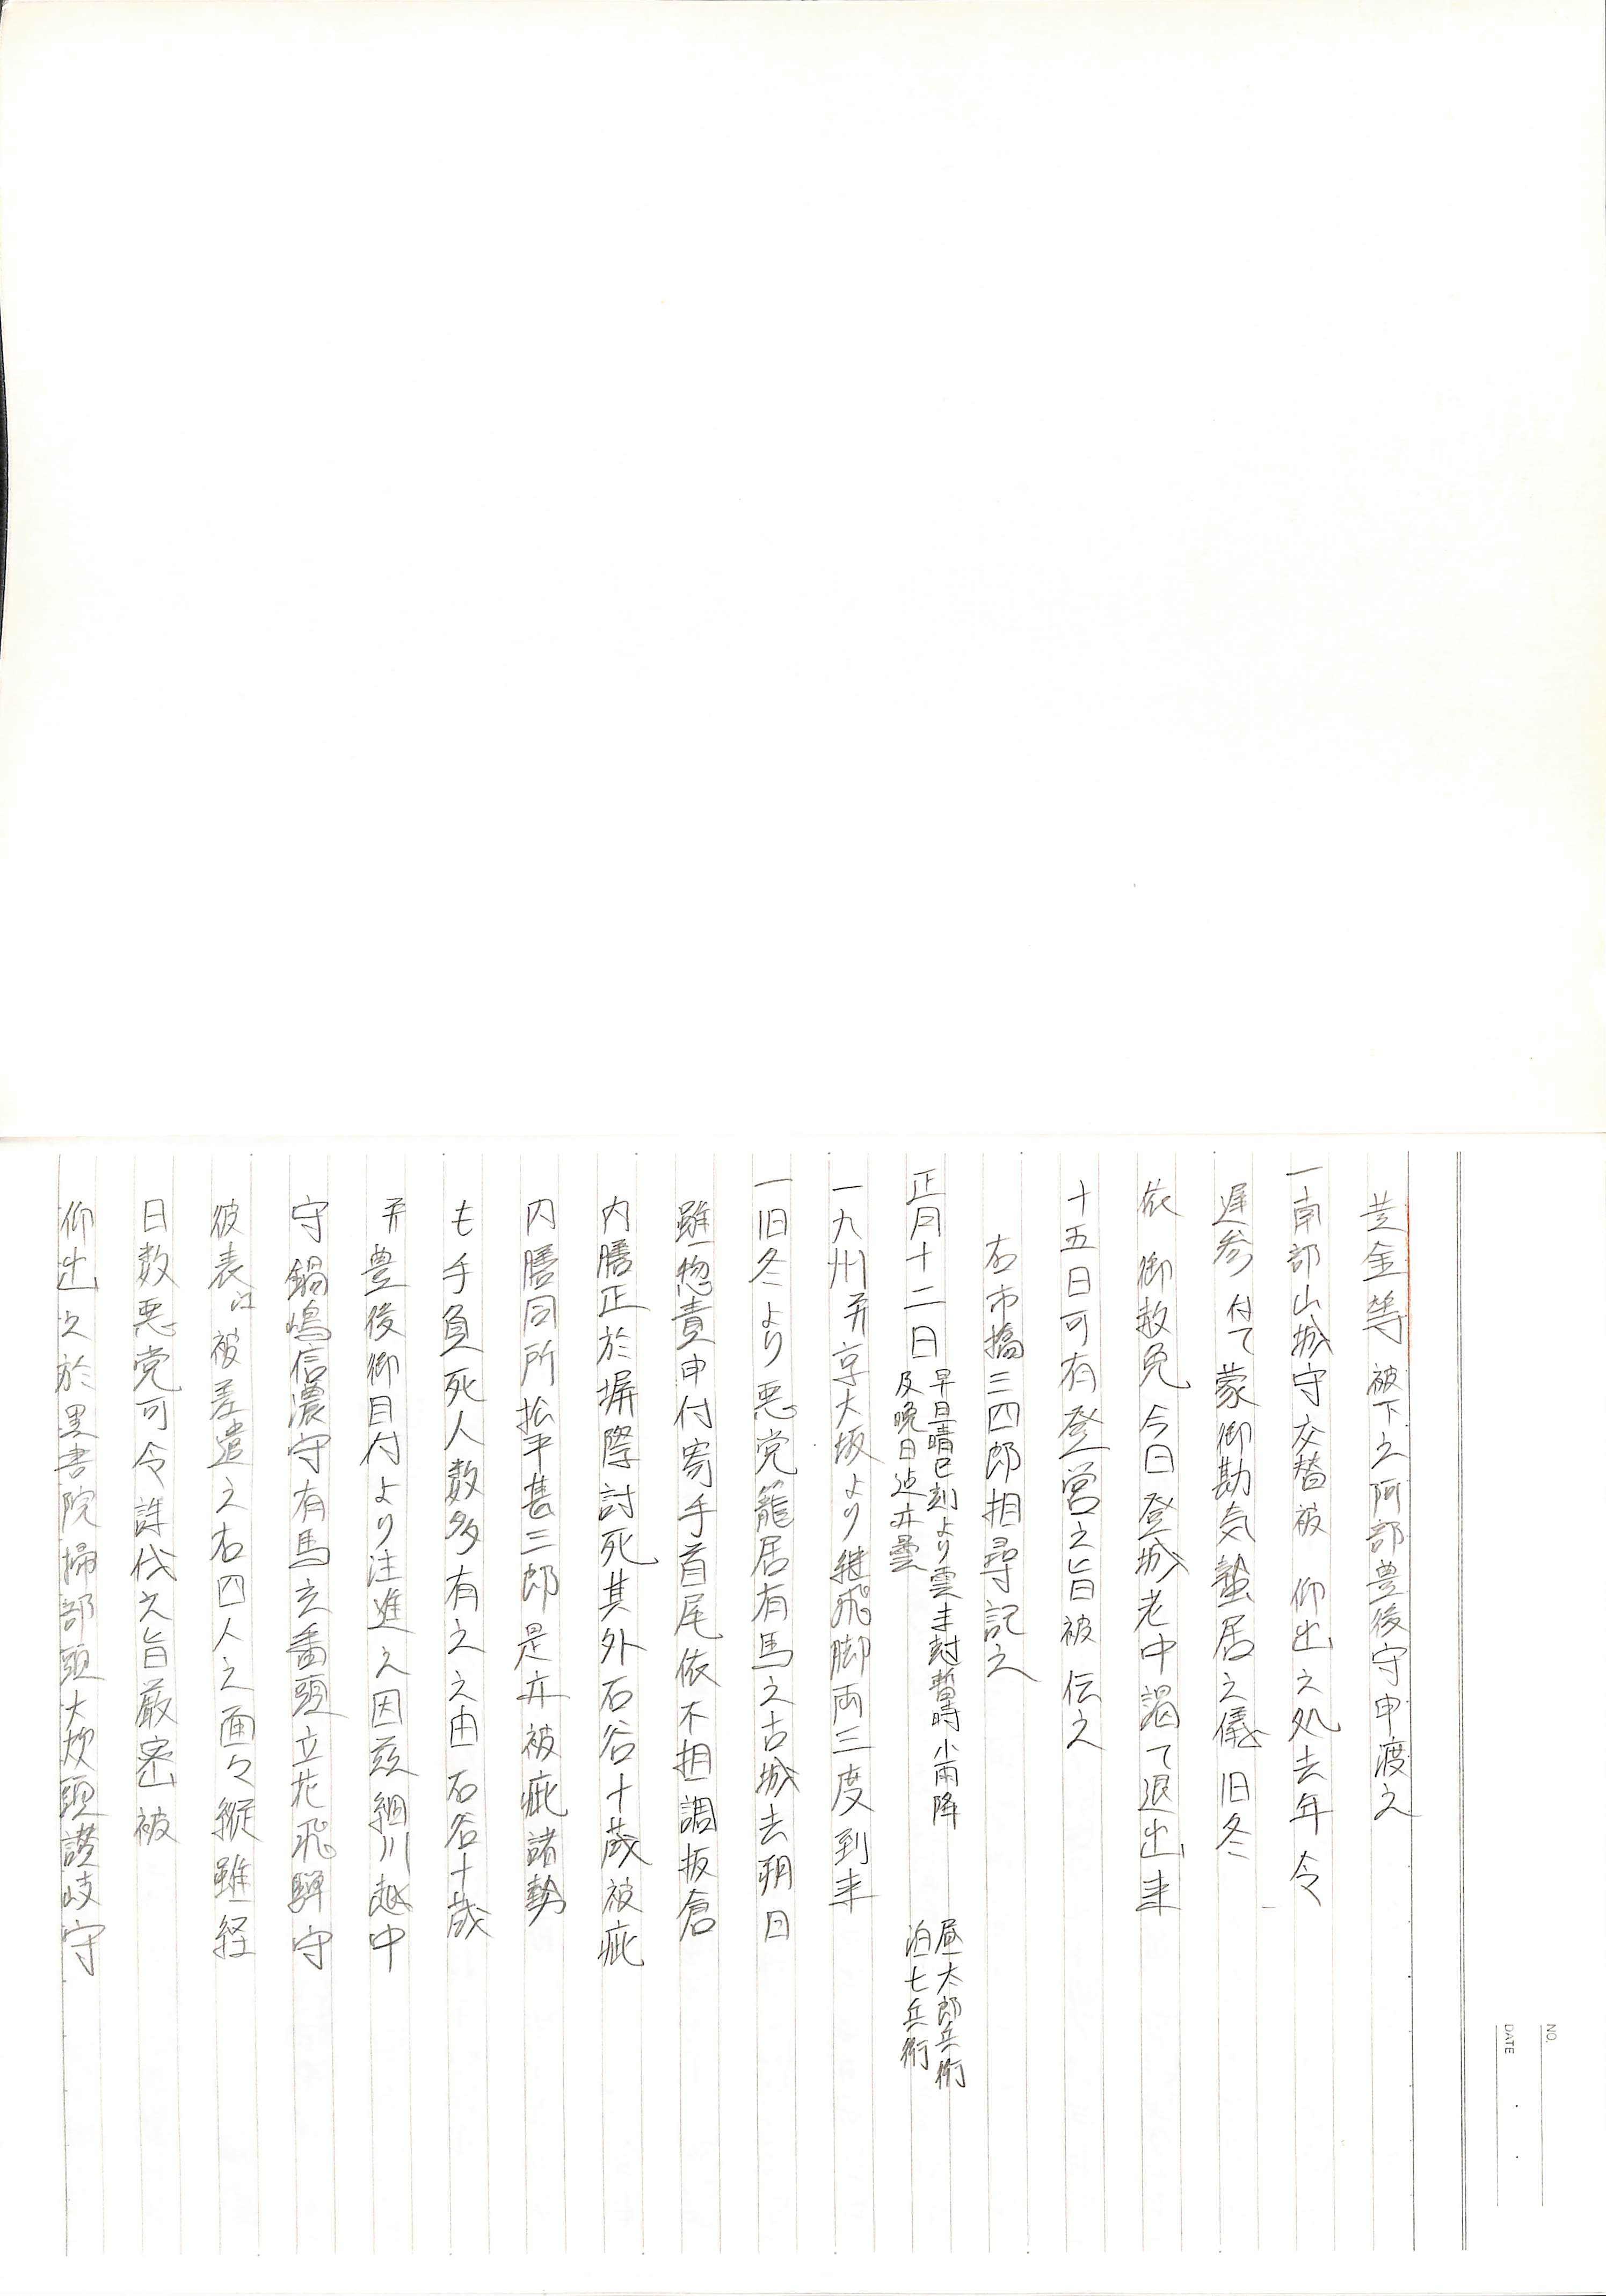 黄金等 被下之阿部豊後守申渡之
一南部山城守交替被 仰出之処去年令
遅参付て蒙御勘気蟄居之儀旧冬
依 御赦免今日登城老中謁て退出来
十五日可有登営之旨被伝之
右市橋三四郎相尋記之
正月十二日 早旦晴巳刻より雲来封暫時小雨降 昼太郎兵衛
及晩日迠亦曇 泊七兵衛
一九州并京大坂より継飛脚両三度到来
一旧冬より悪党籠居有馬之古城去朔日
雖惣責申付寄手首尾依不相調板倉
内膳正於塀際討死其外石谷十蔵被疵
内膳同所松平甚三郎是亦被疵諸勢
も手負死人数多有之之由石谷十蔵
并豊後御目付より注進之因茲細川越中
守鍋嶋信濃守有馬玄番頭立花飛騨守
彼表江被差遣之右四人之面々縦雖経
日数悪党可令誅伐之旨厳密被
仰出之於黒書院掃部頭大炊頭讃岐守
NO.
DATE